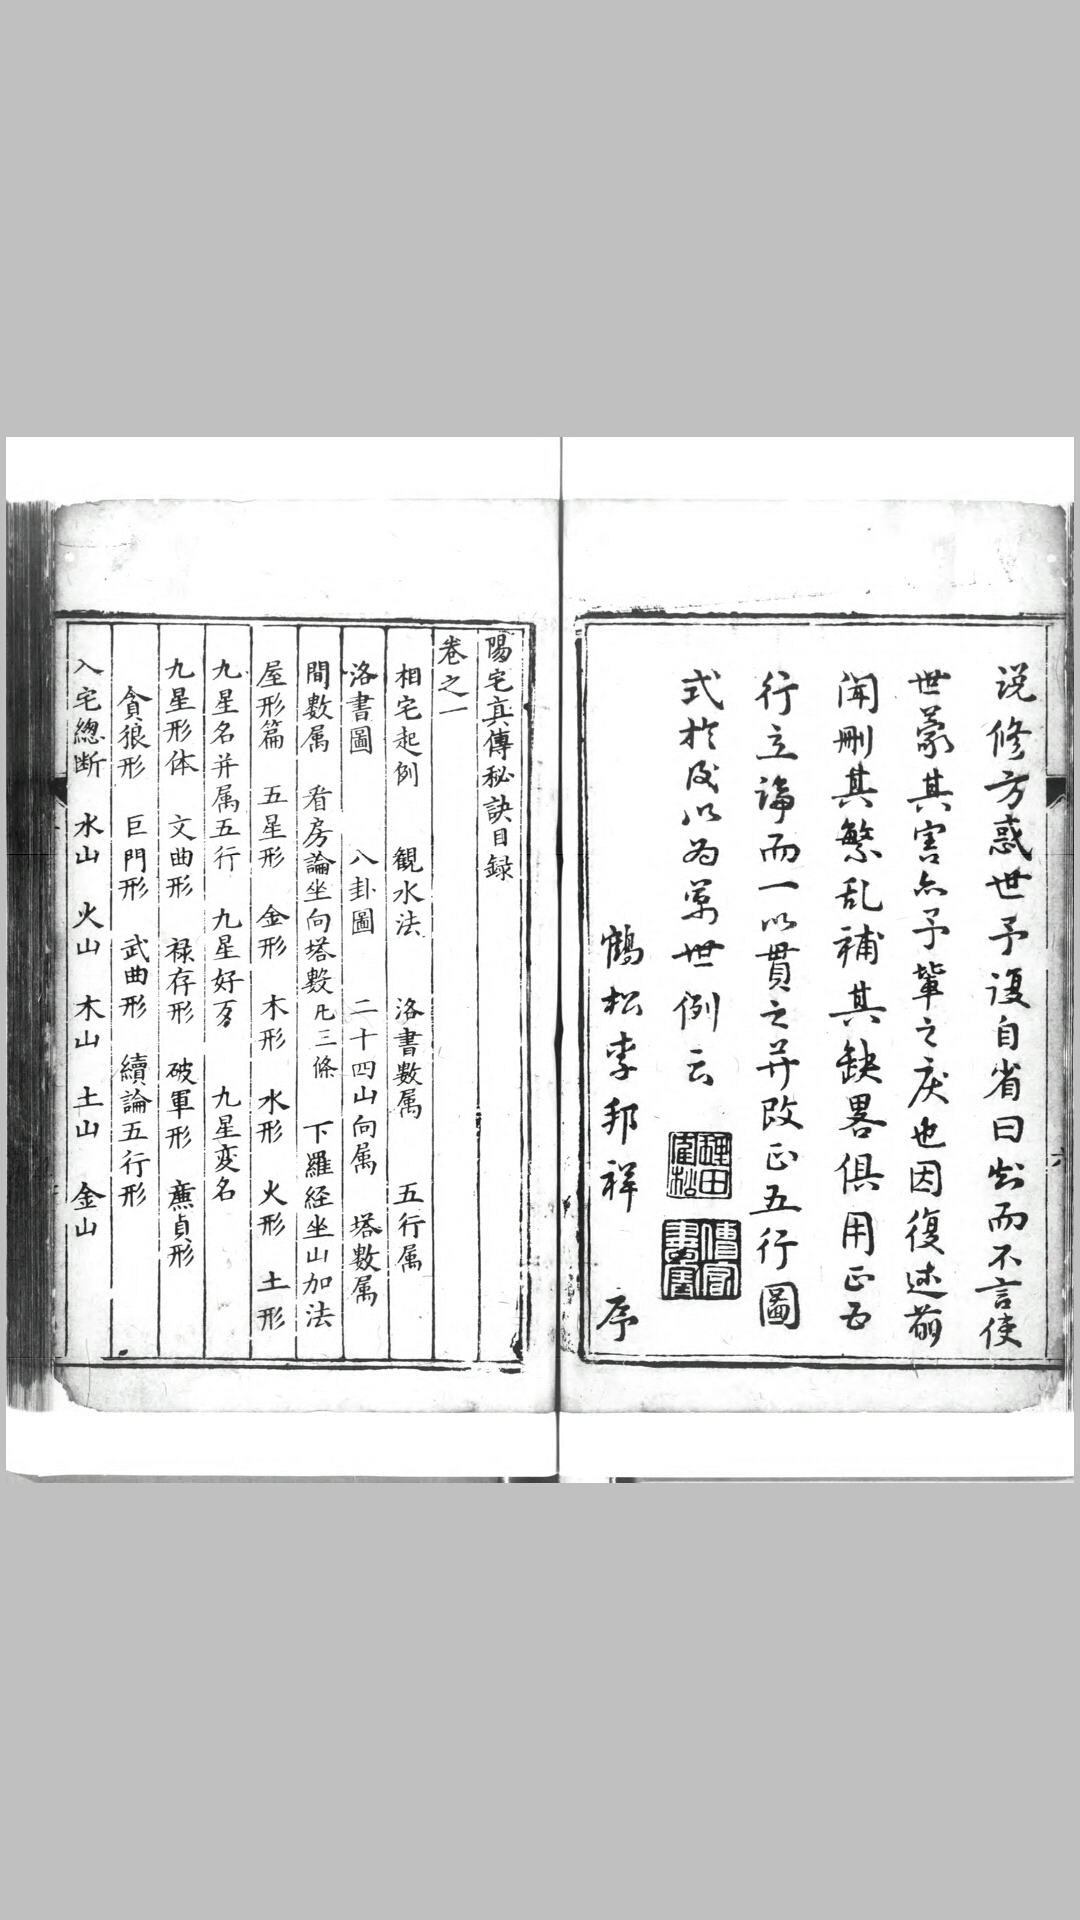 说修方惑世予復自省曰知而不言使
世蒙其害亦予輩之戾也因復述前
聞刪其繁乱補其缺畧俱用正五
行立論而一以貫之并改正五行圖
式於後以為萬世例云
鶴松李邦祥 序
陽宅真傳秘訣目録
卷之一
相宅起例 観水法 洛書數属 五行属
洛書圖 八卦圖 二十四山向属 塔數属
間數属 看房論坐向塔數凡三條 下羅経坐山加法
屋形篇 五星形 金形 木形 水形 火形 土形
九星名并属五行 九星好歹 九星変名
九星形体 文曲形 禄存形 破軍形 廉貞形
貪狼形 巨門形 武曲形 續論五行形
入宅總断 水山 火山 木山 土山 金山